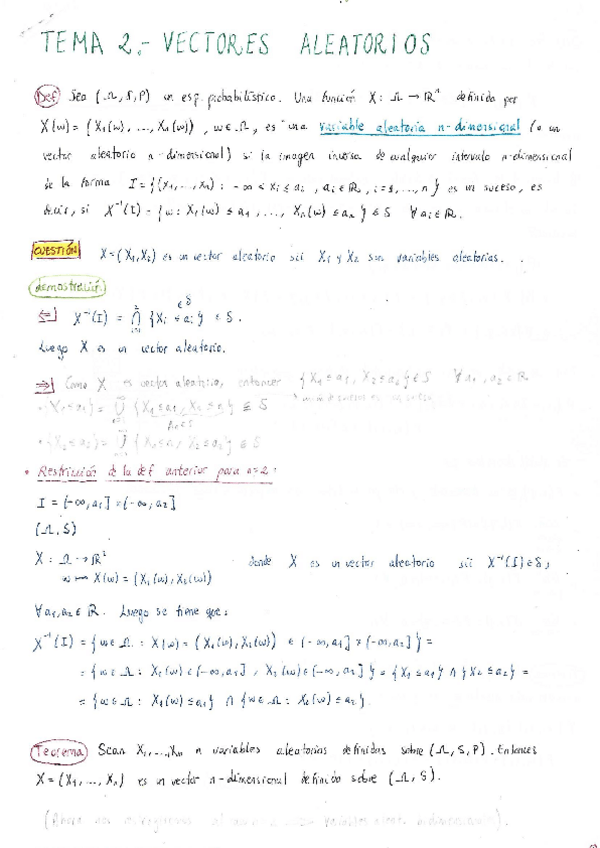 TEMA 2.- VECTORES ALEATORIOS
Def Sea (Ω, S, P) un esp. probabilístico. Una función X: Ω → ℝⁿ definida por
X(w) = (X₁(w), ..., Xₙ(w)), w ∈ Ω, es una variable aleatoria n-dimensional (o un
vector aleatorio n-dimensional) si la imagen inversa de cualquier intervalo n-dimensional
de la forma I = {(x₁, ..., xₙ) : -∞ < xᵢ ≤ aᵢ, aᵢ ∈ ℝ, i = 1, ..., n} es un suceso, es
decir, si X⁻¹(I) = {w : X₁(w) ≤ a₁, ..., Xₙ(w) ≤ aₙ} ∈ S ∀ aᵢ ∈ ℝ.
CUESTIÓN X = (X₁, X₂) es un vector aleatorio sii X₁ y X₂ son variables aleatorias.
demostración
⇐] X⁻¹(I) = ⋂ {Xᵢ ≤ aᵢ} ∈ S.
∈ S
Luego X es un vector aleatorio.
⇒] Como X es vector aleatorio, entonces {X₁ ≤ a₁, X₂ ≤ a₂} ∈ S ∀ a₁, a₂ ∈ ℝ
• {X₁ ≤ a₁} = ⋃ {X₁ ≤ a₁, X₂ ≤ n} ∈ S
• {X₂ ≤ a₂} = ⋃ {X₁ ≤ n, X₂ ≤ a₂} ∈ S
• Restricción de la def anterior para n=2:
I = (-∞, a₁] × (-∞, a₂]
(Ω, S)
X : Ω → ℝ² donde X es un vector aleatorio sii X⁻¹(I) ∈ S,
w ↦ X(w) = (X₁(w), X₂(w))
∀ a₁, a₂ ∈ ℝ. Luego se tiene que:
X⁻¹(I) = {w ∈ Ω : X(w) = (X₁(w), X₂(w)) ∈ (-∞, a₁] × (-∞, a₂]} =
= {w ∈ Ω : X₁(w) ∈ (-∞, a₁], X₂(w) ∈ (-∞, a₂]} = {X₁ ≤ a₁} ∩ {X₂ ≤ a₂} =
= {w ∈ Ω : X₁(w) ≤ a₁} ∩ {w ∈ Ω : X₂(w) ≤ a₂}.
Teorema Sean X₁, ..., Xₙ n variables aleatorias definidas sobre (Ω, S, P). Entonces
X = (X₁, ..., Xₙ) es un vector n-dimensional definido sobre (Ω, S).
(Ahora nos